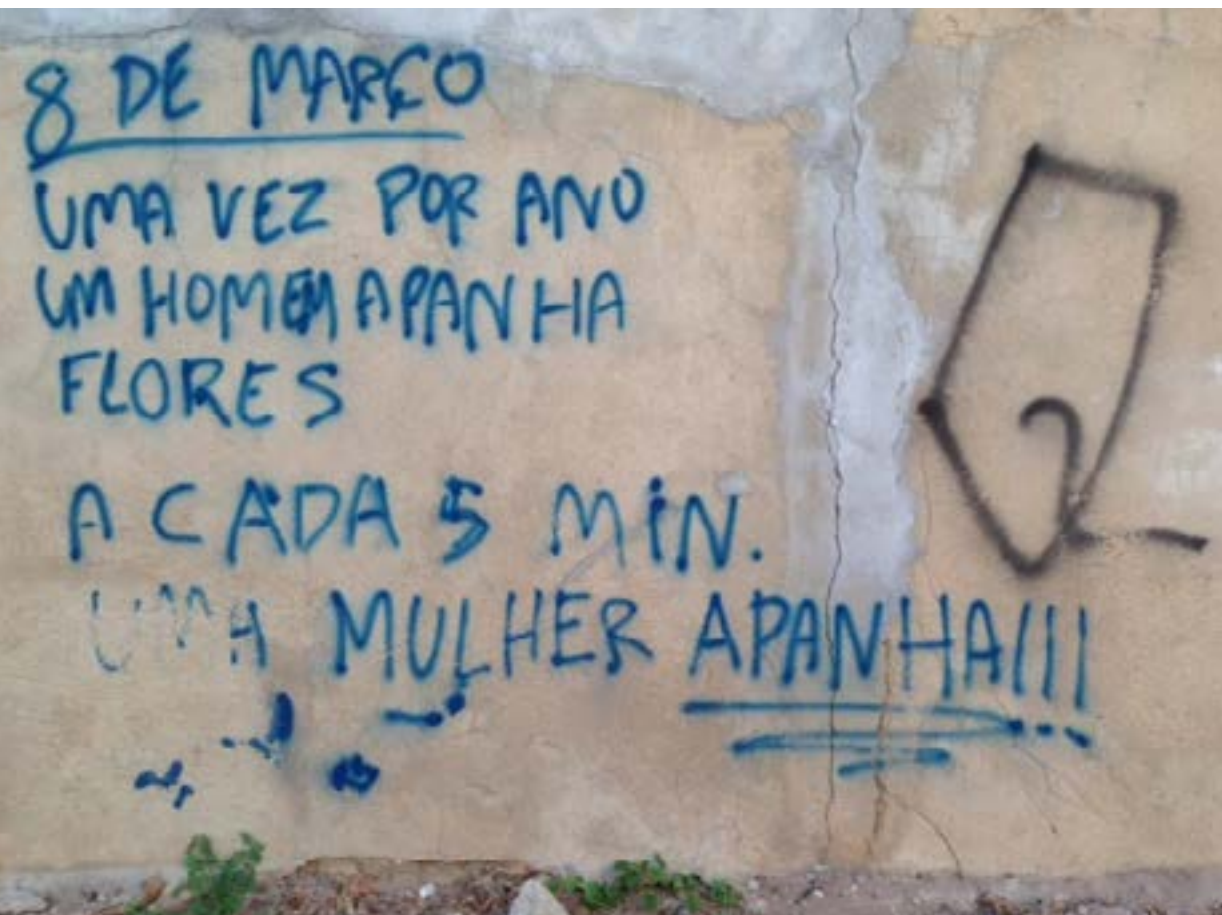 8 DE MARÇO
UMA VEZ POR ANO
UM HOMEM APANHA
FLORES
A CADA 5 MIN.
UMA MULHER APANHA!!!